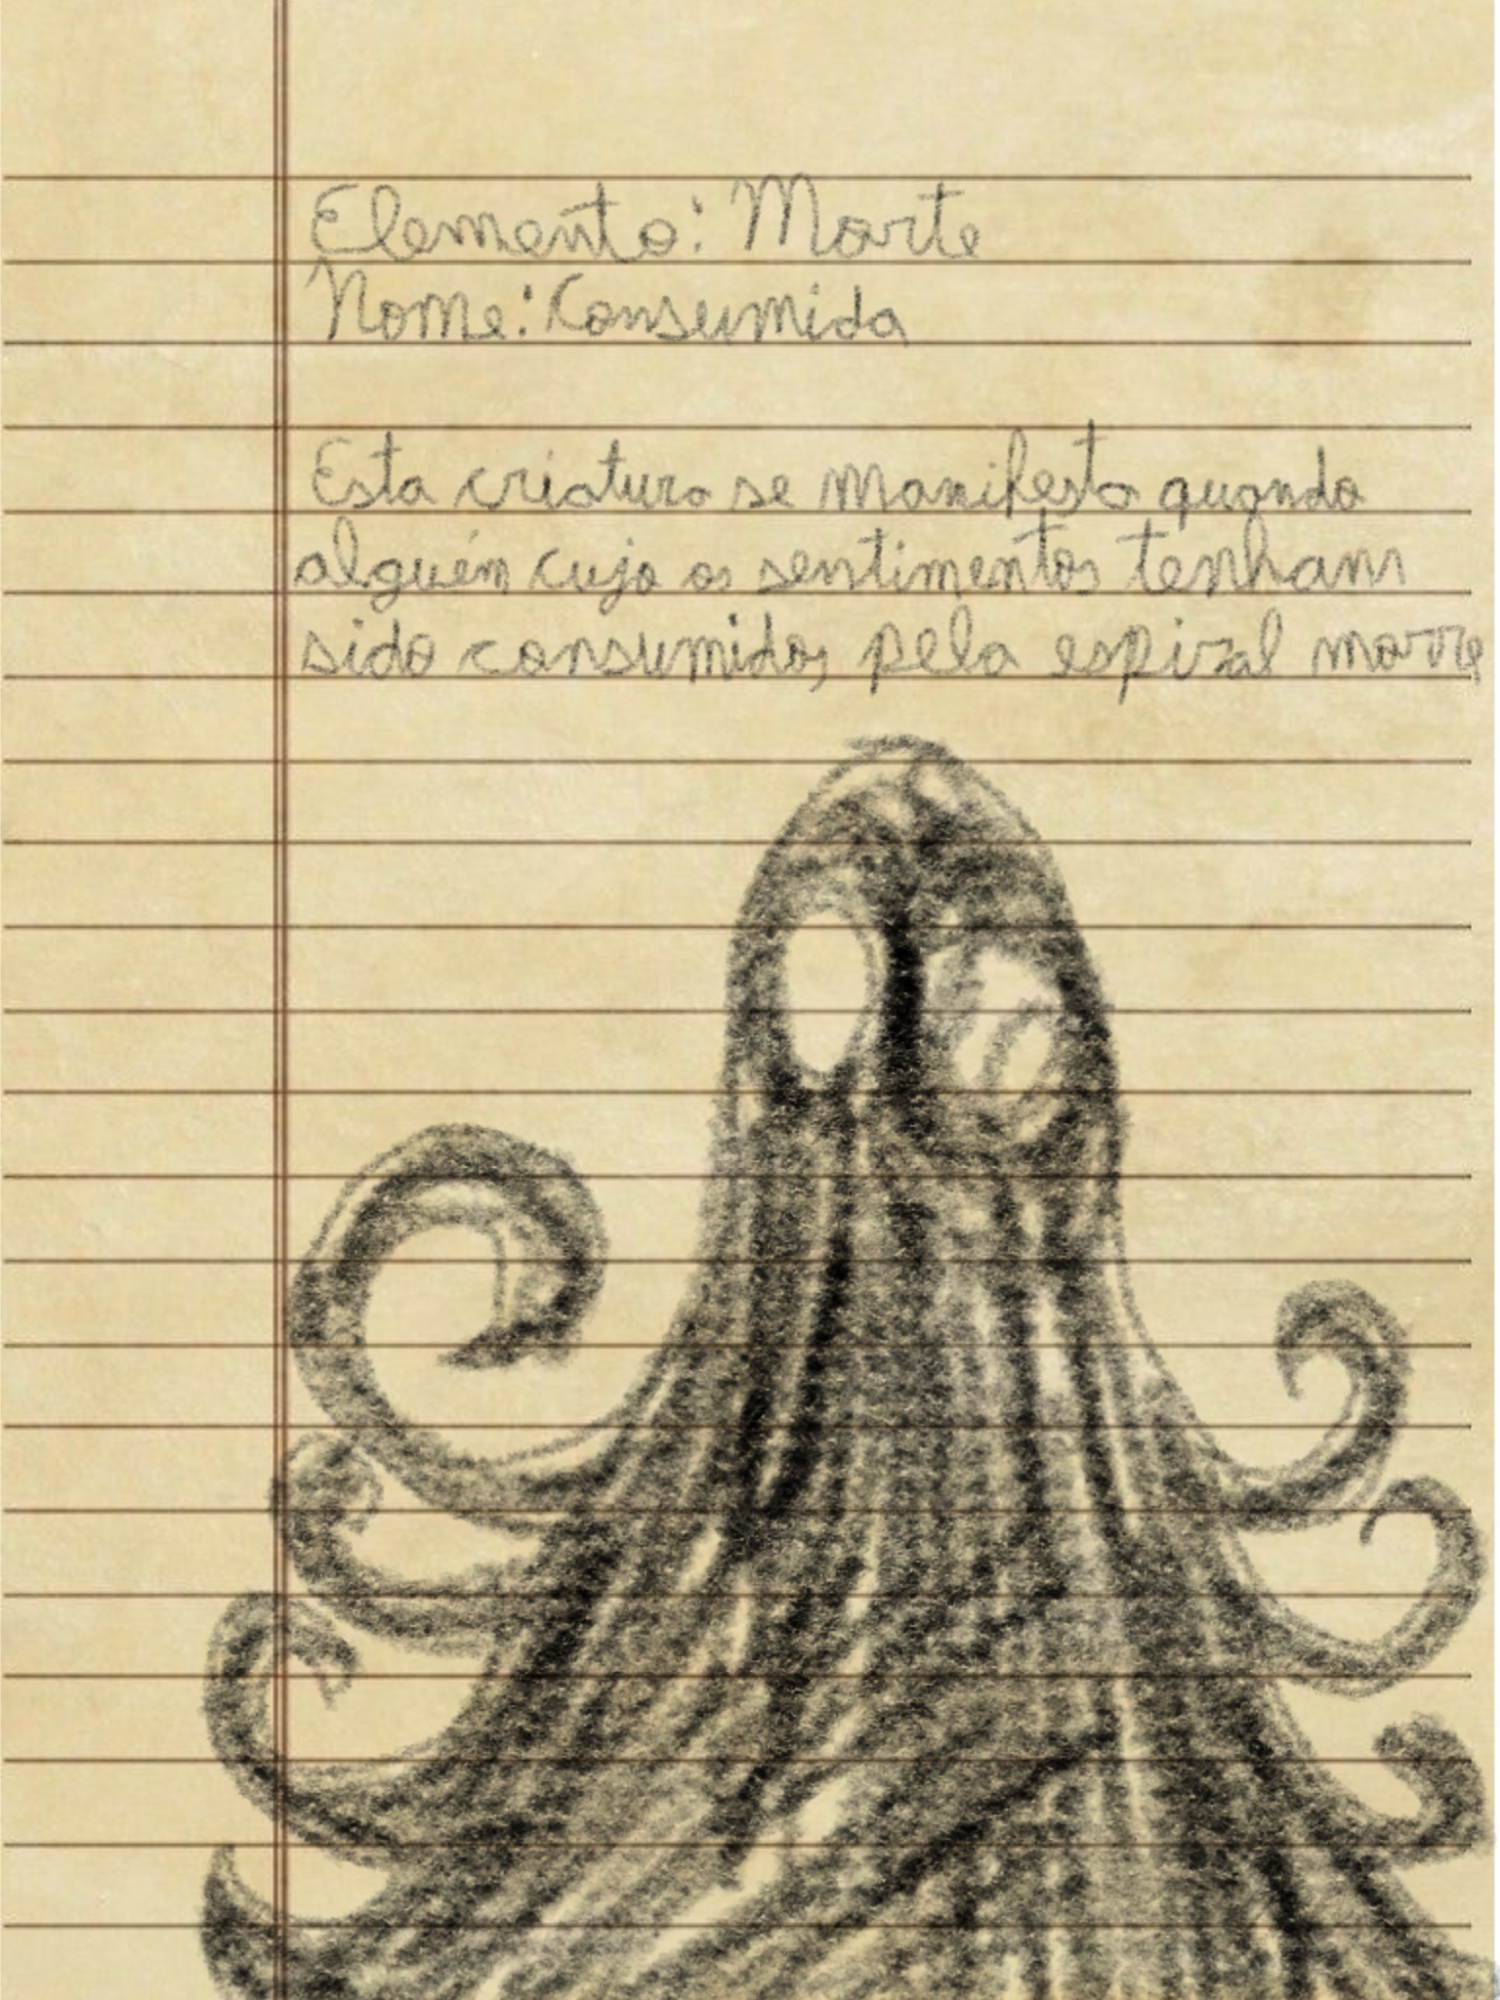 Elemento: Morte
Nome: Consumida
Esta criatura se manifesta quando
alguém cujo os sentimentos tenham
sido consumidos pela espiral morre